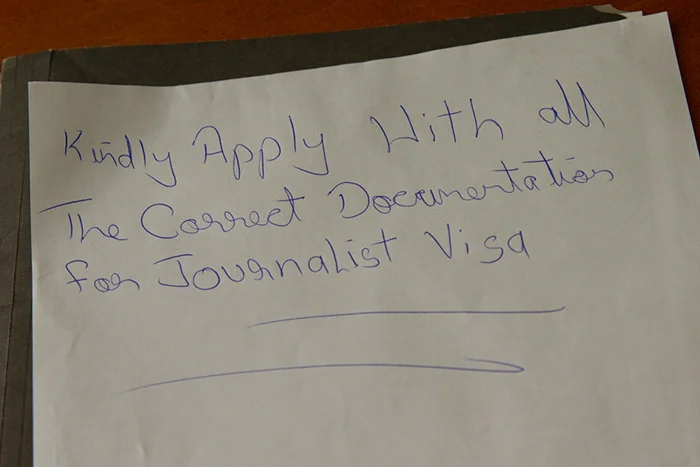 Kindly Apply With all
The Correct Documentation
for Journalist Visa